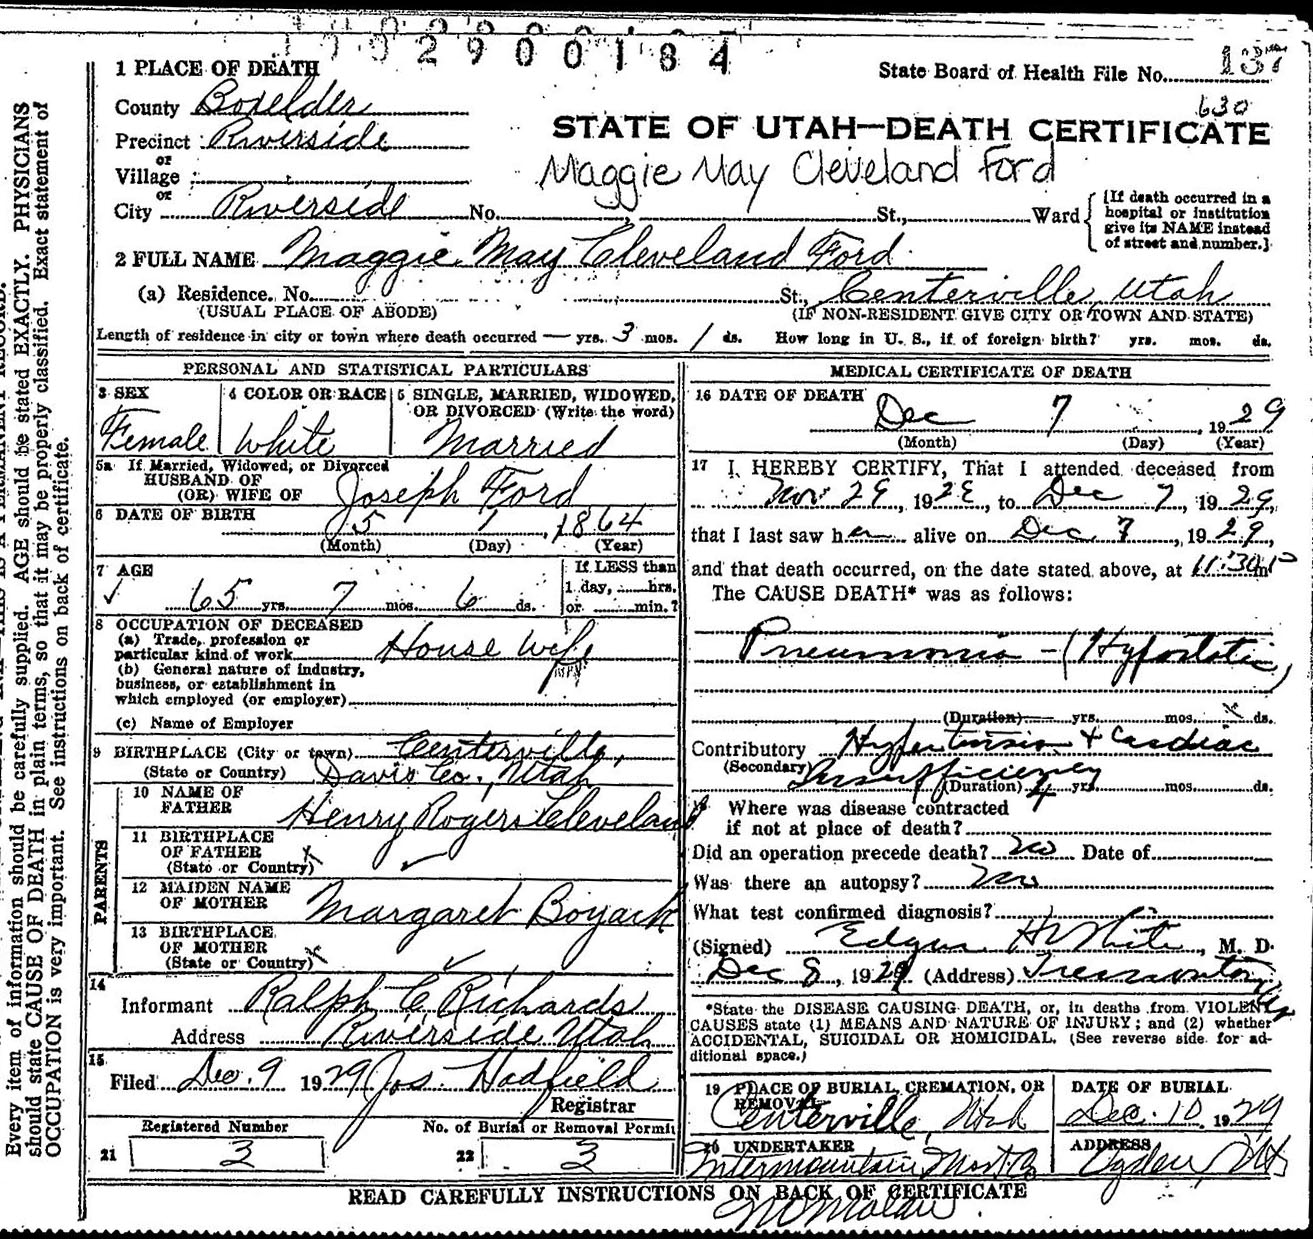 1 9 0 2 9 0 0 1 8 4
137
State Board of Health File No.
630
1 PLACE OF DEATH
County Boxelder
STATE OF UTAH—DEATH CERTIFICATE
Precinct Riverside
or
Village
Maggie May Cleveland Ford
or
City Riverside No. , St., Ward
[If death occurred in a
hospital or institution
give its NAME instead
of street and number.]
2 FULL NAME Maggie May Cleveland Ford
(a) Residence. No. St., Centerville, Utah
(USUAL PLACE OF ABODE) (IF NON-RESIDENT GIVE CITY OR TOWN AND STATE)
Length of residence in city or town where death occurred — yrs. 3 mos. 1 ds. How long in U. S., if of foreign birth? yrs. mos. ds.
PERSONAL AND STATISTICAL PARTICULARS
3 SEX
Female
4 COLOR OR RACE
White
5 SINGLE, MARRIED, WIDOWED,
OR DIVORCED (Write the word)
Married
5a If Married, Widowed, or Divorced
HUSBAND OF
(OR) WIFE OF Joseph Ford
6 DATE OF BIRTH
5 1, 1864
(Month) (Day) (Year)
7 AGE
65 yrs. 7 mos. 6 ds.
If LESS than
1 day, hrs.
or min.?
8 OCCUPATION OF DECEASED
(a) Trade, profession or
particular kind of work House wife
(b) General nature of industry,
business, or establishment in
which employed (or employer)
(c) Name of Employer
9 BIRTHPLACE (City or town) Centerville,
(State or Country) Davis Co., Utah
PARENTS
10 NAME OF
FATHER Henry Rogers Cleveland
11 BIRTHPLACE
OF FATHER
(State or Country)
12 MAIDEN NAME
OF MOTHER Margaret Boyack
13 BIRTHPLACE
OF MOTHER
(State or Country)
14
Informant Ralph C Richards
Address Riverside Utah
15
Filed Dec. 9 1929 Jos. Hadfield
Registrar
Registered Number
21 3
No. of Burial or Removal Permit
22 3
MEDICAL CERTIFICATE OF DEATH
16 DATE OF DEATH
Dec 7, 1929
(Month) (Day) (Year)
17 I HEREBY CERTIFY, That I attended deceased from
Nov 29, 192 to Dec 7, 1929,
that I last saw her alive on Dec 7, 1929,
and that death occurred, on the date stated above, at 11:30 m P
The CAUSE DEATH* was as follows:
Pneumonia - (Hypostatic)
(Duration) yrs. mos. ds.
Contributory Hypertension + Cardiac
(Secondary) Insufficiency
(Duration) 4 yrs. mos. ds.
Where was disease contracted
if not at place of death?
Did an operation precede death? No Date of
Was there an autopsy? No
What test confirmed diagnosis?
(Signed) Edgar H White, M. D.
Dec 8, 1929 (Address) Tremonton
*State the DISEASE CAUSING DEATH, or, in deaths from VIOLENT
CAUSES state (1) MEANS AND NATURE OF INJURY; and (2) whether
ACCIDENTAL, SUICIDAL OR HOMICIDAL. (See reverse side for ad-
ditional space.)
19 PLACE OF BURIAL, CREMATION, OR
REMOVAL
Centerville, Utah
DATE OF BURIAL
Dec. 10 1929
20 UNDERTAKER
Intermountain Mort Co
ADDRESS
Ogden, Ut
READ CAREFULLY INSTRUCTIONS ON BACK OF CERTIFICATE
Every item of information should be carefully supplied. AGE should be stated EXACTLY. PHYSICIANS
should state CAUSE OF DEATH in plain terms, so that it may be properly classified. Exact statement of
OCCUPATION is very important. See instructions on back of certificate.